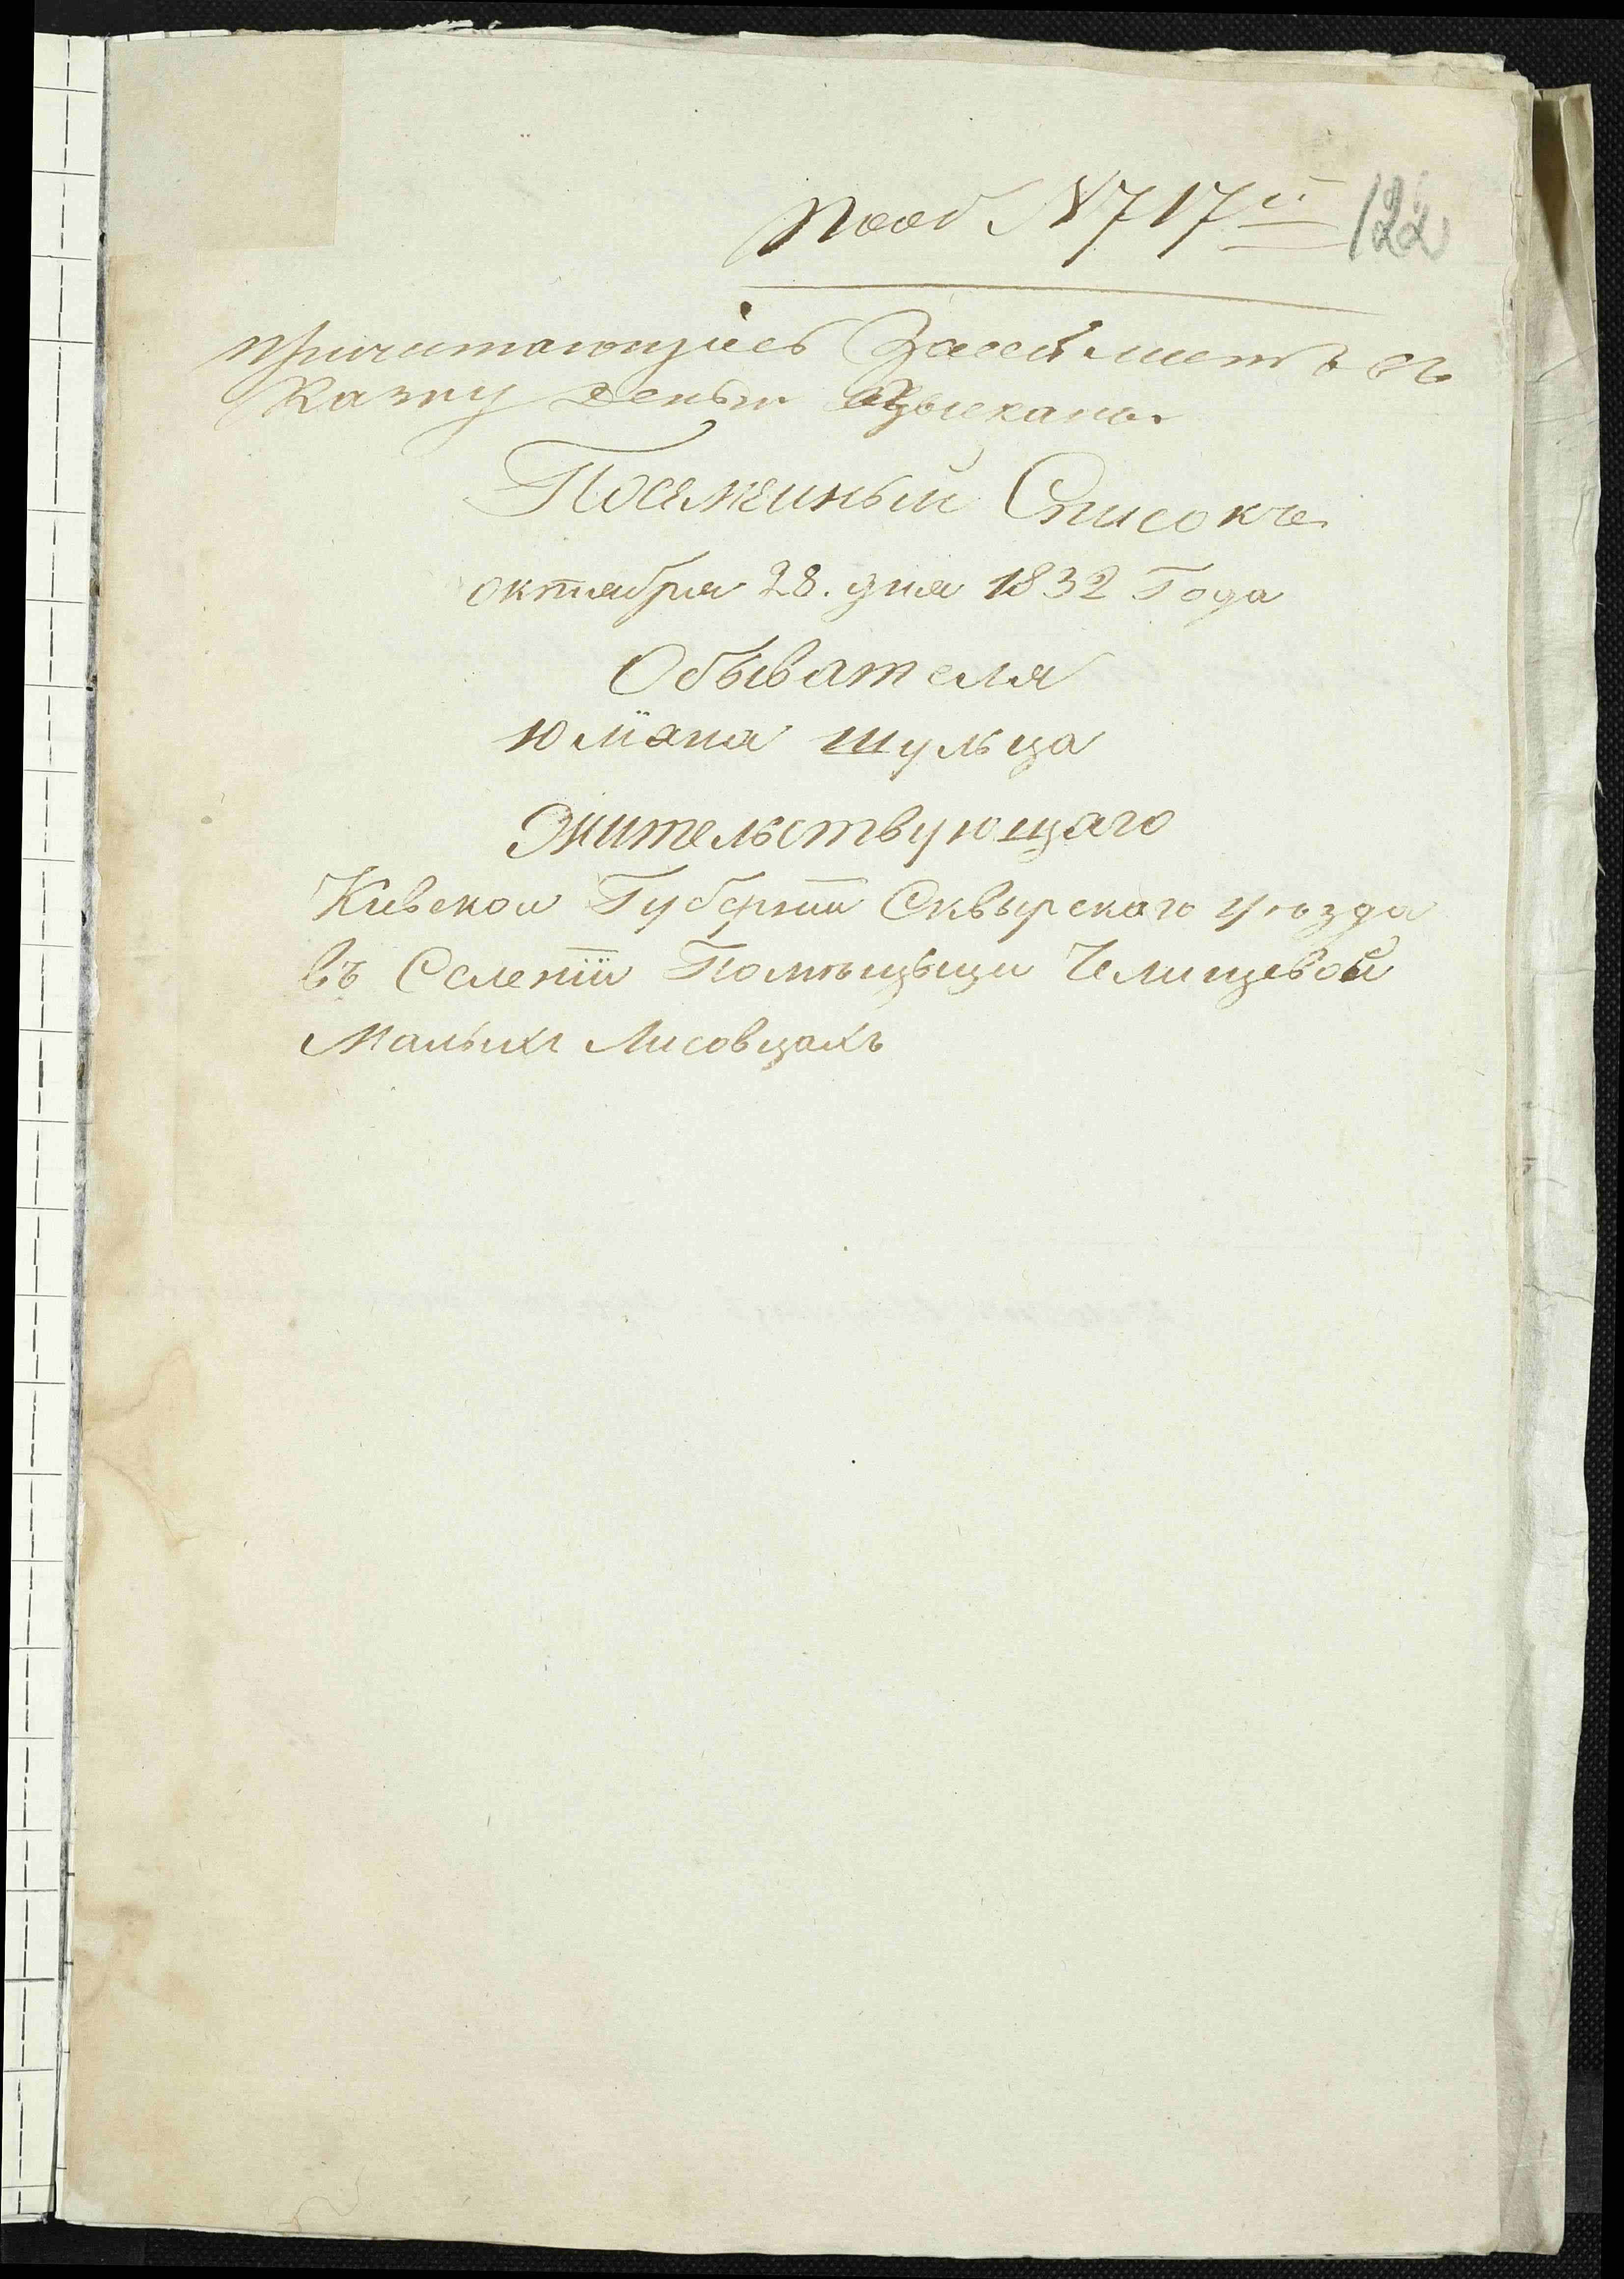 Под № 717й 122
причитающiесъ За сей листъ въ
Казну деньги взысканы
Посемейный Списокъ
октября 28. дня 1832 Года
Обывателя
юлiяна шульца
Жительствующаго
Кiевской Губернiи Сквырскаго уѣзда
въ Селенiи Помѣщыци Челищевой
Малыхъ Лисовцахъ